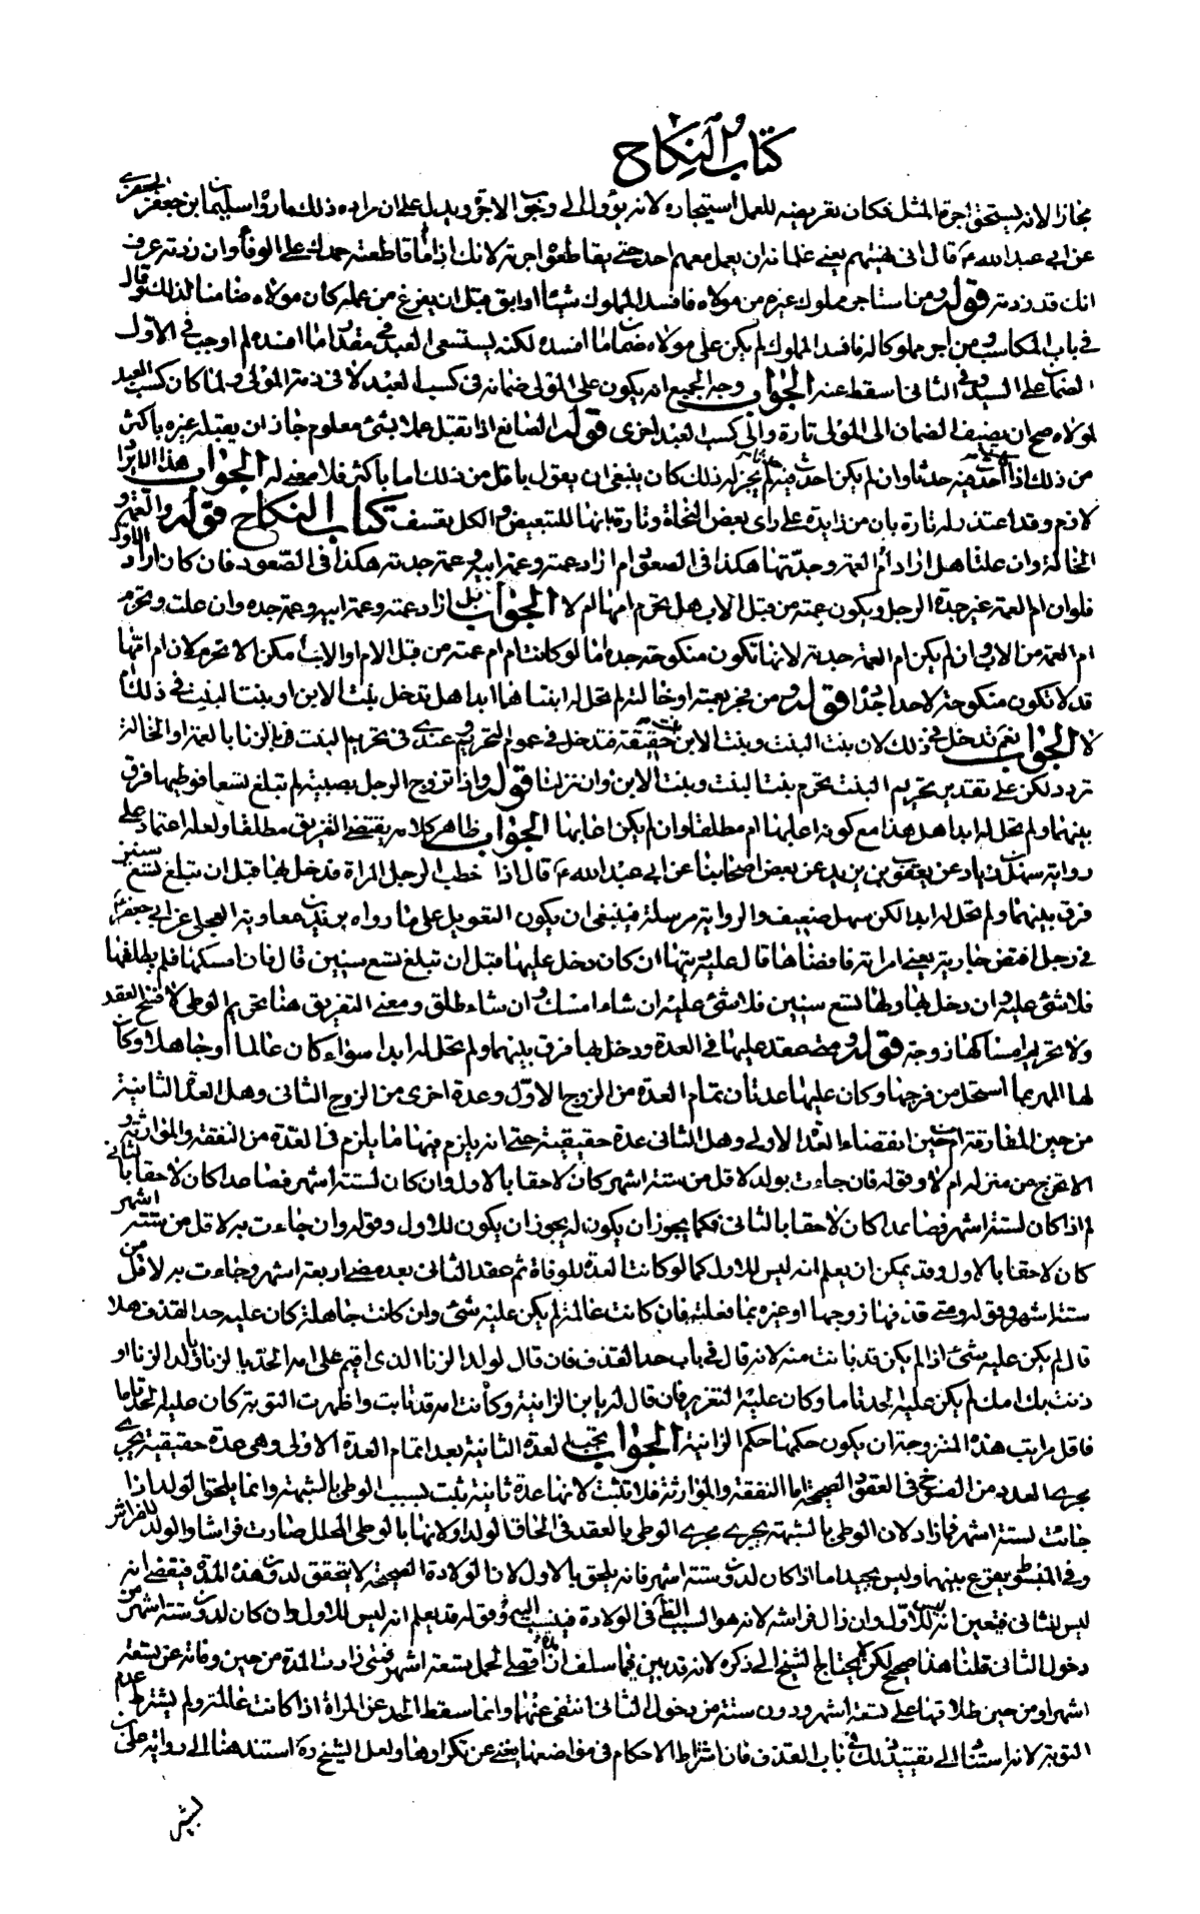 كتاب النكاح
مجازا لانه يستحق اجرة المثل فكان تعريضه للعمل استيجاره لانه يؤول الى وجوب الاجرة ويدل على ان مراده ذلك ما رواه سليمان بن جعفر الجعفري
عن ابي عبد الله ع قال اني نهيتهم يعني غلمانه ان يعمل معهم احد حتى يقاطعوه اجرته لانك اذا ما قاطعته حمدك على الوفاء وان زدته عرف
انك قد زدته قوله ومن استاجر مملوك غيره من مولاه فافسد المملوك شيئا او ابق قبل ان يفرغ من عمله كان مولاه ضامنا لذلك وقال
في باب المكاسب ومن اجر مملوكا له فافسد المملوك لم يكن على مولاه ضمان ما افسده لكنه يستسعي العبد في مقدار ما افسده لم اوجب في الاول
الضمان على السيد وفي الثاني اسقط عنه الجواب وجه الجمع انه يكون على المولى ضمانه في كسب العبد لا في ذمة المولى ولما كان كسب العبد
لمولاه صح ان يضيف الضمان الى المولى تارة والى كسب العبد اخرى قوله الصانع اذا تقبل عملا بشئ معلوم جاز ان يقبله غيره باكثر
من ذلك اذا احدث فيه حدثا وان لم يكن احدث فيه لم يجز له ذلك كان ينبغي ان يقول باقل من ذلك اما باكثر فلا معنى له الجواب هذا الايراد
لازم وقد اعتذر له تارة بان من زايدة على راى بعض النحاة وتارة بانها للتبعيض والكل تعسف كتاب النكاح قوله والعمة و
الخالة وان علتا هل اراد ام العمة وجدتها هكذا في الصعود ام اراد عمته وعمة ابيه وعمة جدته هكذا في الصعود فان كان اراد الاول
فلو ان ام العمة غير جدة الرجل ويكون عمته من قبل الاب هل تحرم امها ام لا الجواب بل اراد عمته وعمة ابيه وعمة جده وان علت وتحرم
ام العمة من الاب وان لم يكن ام العمة جدته لانها تكون منكوحة جده اما لو كانت ام ام عمته من قبل الام او الاب امكن الا تحرم لان ام امها
قد لا تكون منكوحة لاحد اجداده قوله ومن فجر بعمته او خالته لم تحل له ابنتاهما ابدا هل تدخل بنت الابن او بنت البنت في ذلك ام
لا الجواب نعم تدخل في ذلك لان بنت البنت وبنت الابن بنت حقيقة فتدخل في عموم التحريم وعندي في تحريم البنت في الزنا بالعمة او الخالة
تردد لكن على تقدير تحريم البنت تحرم بنت البنت وبنت الابن وان نزلتا قوله واذا تزوج الرجل بصبية لم تبلغ تسعا فوطيها فرق
بينهما ولم تحل له ابدا هل هذا مع كونه اعابها ام مطلقا وان لم يكن اعابها الجواب ظاهر كلامه يقتضي التفريق مطلقا ولعله اعتماد على
رواية سهل بن زياد عن يعقوب بن يزيد عن بعض اصحابنا عن ابي عبد الله ع قال اذا خطب الرجل المراة فدخل بها قبل ان تبلغ تسع سنين
فرق بينهما ولم تحل له ابدا لكن سهل ضعيف والرواية مرسلة فينبغي ان يكون التعويل على ما رواه بريد بن معاوية العجلي عن ابي جعفر ع
في رجل افتض جارية يعني امراته فافضاها قال عليه ديتها ان كان دخل عليها قبل ان تبلغ تسع سنين قال فان امسكها فلم يطلقها
فلا شئ عليه وان دخل بها ولها تسع سنين فلا شئ عليه ان شاء امسك وان شاء طلق ومعنى التفريق هنا تحريم الوطي لا فسخ العقد
ولا تحريم امساكها زوجة قوله ومتى عقد عليها في العدة ودخل بها فرق بينهما ولم تحل له ابدا سواء كان عالما او جاهلا وكان
لها المهر بما استحل من فرجها وكان عليها عدتان تمام العدة من الزوج الاول وعدة اخرى من الزوج الثاني وهل العدة الثانية
من حين المفارقة ام من حين انقضاء العدة الاولى وهل الثاني عدة حقيقية حتى انه يلزم فيها ما يلزم في العدة من النفقة والموارثة و
الا تخرج من منزله ام لا وقوله فان جاءت بولد لاقل من ستة اشهر كان لاحقا بالاول وان كان لستة اشهر فصاعدا كان لاحقا بالثاني
لم اذا كان لستة اشهر فصاعدا كان لاحقا بالثاني فكما يجوز ان يكون له يجوز ان يكون للاول وقوله وان جاءت به لاقل من ستة اشهر
كان لاحقا بالاول وقد يمكن ان يعلم انه ليس للاول كما لو كانت العدة للوفاة ثم عقد الثاني بعد مضي اربعة اشهر وجاءت به لاقل من
ستة اشهر وقوله ومتى قذفها زوجها او غيره بما فعلته فان كانت عالمة لم يكن عليه شئ وان كانت جاهلة كان عليه حد القذف هلا
قال لم يكن عليه شئ اذا لم يكن قد تابت منه لانه قال في باب حد القذف فان قال لولد الزنا الذي اقيم على امه الحد بالزنا يا ولد الزنا او
زنت بك امك لم يكن عليه الحد تاما وكان عليه التعزير فان قال له يا ابن الزانية وكانت امه قد تابت واظهرت التوبة كان عليه الحد تاما
فاقل مراتب هذه المتزوجة ان يكون حكمها حكم الزانية الجواب تجب العدة الثانية بعد اتمام العدة الاولى وهي عدة حقيقية تجري
مجرى العدد من الفسخ في العقود الصحيحة اما النفقة والموارثة فلا تثبت لانها عدة ثانية ثبتت بسبب الوطي بالشبهة وانما يلحق الولد اذا
جاءت لستة اشهر فما زاد لان الوطي بالشبهة يجري مجرى الوطي بالعقد في الحاق الولد ولانها بالوطي المحلل صارت فراشا والولد للفراش
وفي المبسوط يقرع بينهما وليس بجيد اما اذا كان لدون ستة اشهر فانه يلحق بالاول لان الولادة الصحيحة لا تتحقق لدون هذه المدة فيقضي انه
ليس للثاني فتعين انه للاول وان زال فراشه لانه هو السبب الظاهر في الولادة فينسب اليه وقوله قد يعلم انه ليس للاول وان كان لدون ستة اشهر من
دخول الثاني قلنا هذا صحيح لكن لا يحتاج الشيخ الى ذكره لانه قد بين فيما سلف ان اقصى الحمل تسعة اشهر فمتى زادت المدة من حين وفاته عن تسعة
اشهر او من حين طلاقها على تسعة اشهر ودون ستة من دخول الثاني انتفى عنهما وانما سقط الحد عن المراة اذا كانت عالمة ولم يشترط عدم
التوبة لانه استنادا الى تقييد ذلك في باب القذف فان اشتراط الاحكام في مواضعها يغني عن تكرارها ولعل الشيخ ره استند هنا الى رواية علي بن
بشير